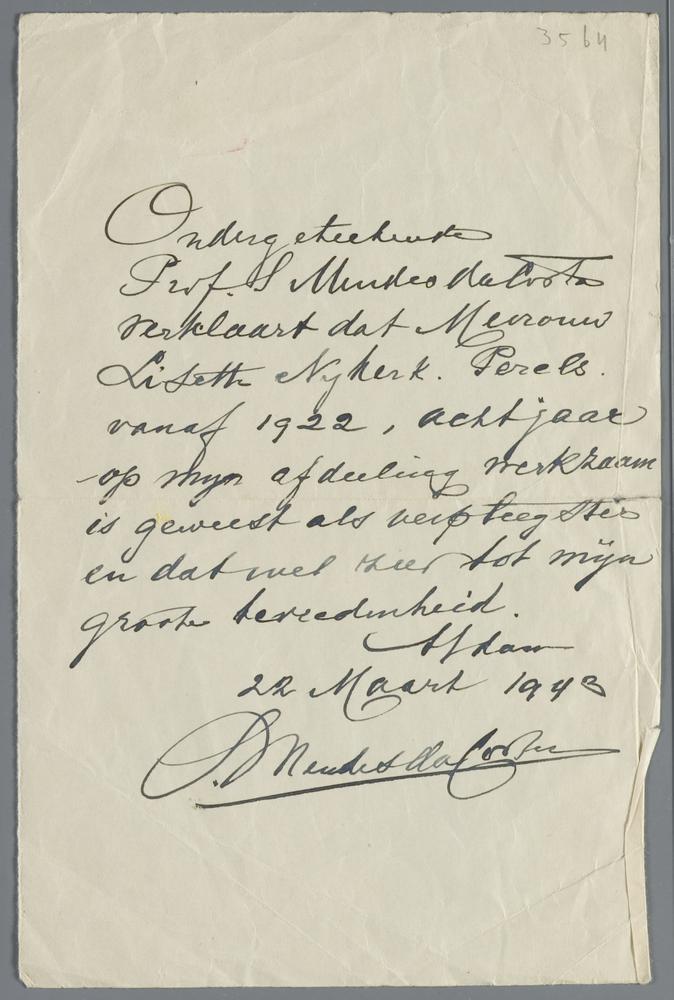 3564
Ondergeteekende
Prof. S Mendes da Costa
verklaart dat Mevrouw
Lisette Nykerk. Perels.
vanaf 1922, acht jaar
op mijn afdeeling werkzaam
is geweest als verpleegster
en dat wel zeer tot mijn
groote tevredenheid.
A/dam
22 Maart 1943
S. Mendes da Costa